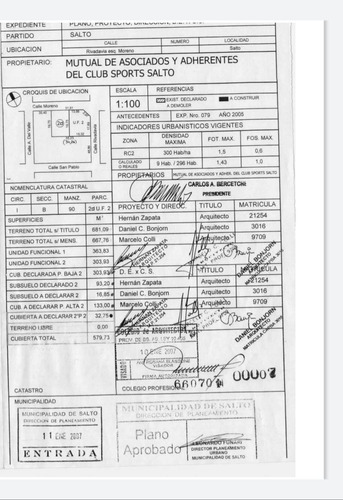 EXPEDIENTE
PLANO, PROYECTO, DIRECCION,
PARTIDO SALTO
CALLE NUMERO LOCALIDAD
UBICACION Rivadavia esq. Moreno Salto
PROPIETARIO: MUTUAL DE ASOCIADOS Y ADHERENTES
DEL CLUB SPORTS SALTO
CROQUIS DE UBICACION
Calle Moreno
Calle San Pablo
ESCALA REFERENCIAS
1:100 EXIST. DECLARADO A CONSTRUIR
A DEMOLER
ANTECEDENTES EXP. Nro. 079 AÑO 2005
INDICADORES URBANISTICOS VIGENTES
ZONA DENSIDAD MAXIMA FOT. MAX. FOS. MAX.
RC2 300 Hab/ha 1,5 0,6
CALCULADO O REALES 9 Hab. / 296 Hab 1,43 1,0
PROPIETARIOS MUTUAL DE ASOCIADOS Y ADHERENTES DEL CLUB SPORTS SALTO
CARLOS A. BERCETCHI
PRESIDENTE
NOMENCLATURA CATASTRAL
CIRC. SECC. MANZ. PARC.
I B 90 2d U.F. 2
SUPERFICIES M²
TERRENO TOTAL s/ TITULO 681,09
TERRENO TOTAL s/ MENS. 667,76
UNIDAD FUNCIONAL 1 363,83
UNIDAD FUNCIONAL 2 303,93
CUB. DECLARADA P. BAJA 2 303,93
SUBSUELO DECLARADO 2 93,20
SUBSUELO A DECLARAR 2 16,85
CUB. A DECLARAR P. ALTA 2 133,00
CUBIERTA A DECLARAR 2º P 2 32,75
TERRENO LIBRE 0,00
CUBIERTA TOTAL 579,73
PROYECTO Y DIRECC. TITULO MATRICULA
Hernán Zapata Arquitecto 21254
Daniel C. Bonjorn Arquitecto 3016
Marcelo Colli Arquitecto 9709
D. E. x C. S. TITULO MATRICULA
Hernán Zapata Arquitecto 21254
Daniel C. Bonjorn Arquitecto 3016
Marcelo Colli Arquitecto 9709
DANIEL BONJORN
ARQUITECTO
COLEGIO DE ARQUITECTOS
10 ENE 2007
COLEGIO PROFESIONAL
00007
CATASTRO
MUNICIPALIDAD
MUNICIPALIDAD DE SALTO
DIRECCION DE PLANEAMIENTO
11 ENE 2007
ENTRADA
MUNICIPALIDAD DE SALTO
DIRECCION DE PLANEAMIENTO
Plano
Aprobado
DIRECTOR PLANEAMIENTO
URBANO
MUNICIPALIDAD DE SALTO